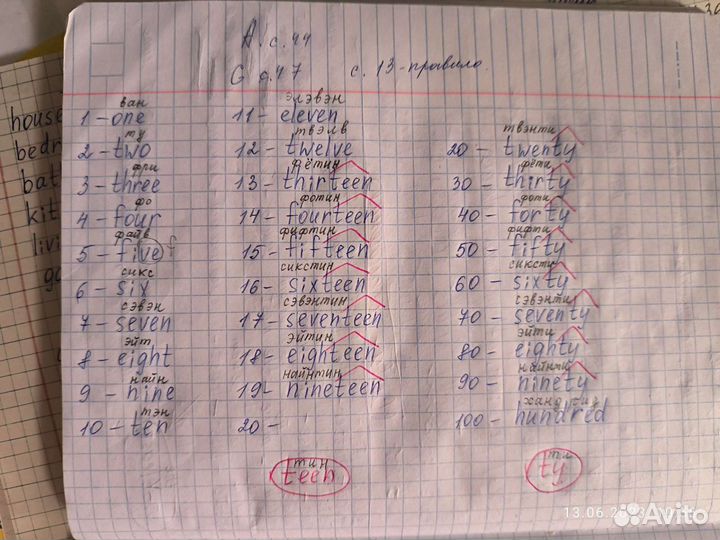 A с. 44
G с. 47 с. 13 - правило.
ван
1 - one
ту
2 - two
фри
3 - three
фо
4 - four
файв
5 - five f
сикс
6 - six
сэвэн
7 - seven
эйт
8 - eight
найн
9 - nine
тэн
10 - ten
элэвэн
11 - eleven
твэлв
12 - twelve
фётин
13 - thirteen
фотин
14 - fourteen
фифтин
15 - fifteen
сикстин
16 - sixteen
сэвэнтин
17 - seventeen
эйтин
18 - eighteen
найнтин
19 - nineteen
20 -
тин
teen
твэнти
20 - twenty
фёти
30 - thirty
фоти
40 - forty
фифти
50 - fifty
сиксти
60 - sixty
сэвэнти
70 - seventy
эйти
80 - eighty
найнти
90 - ninety
100 - hundred
ти
ty
house
bedr
bat
kit
livi
ga
13.06.2023
Avito